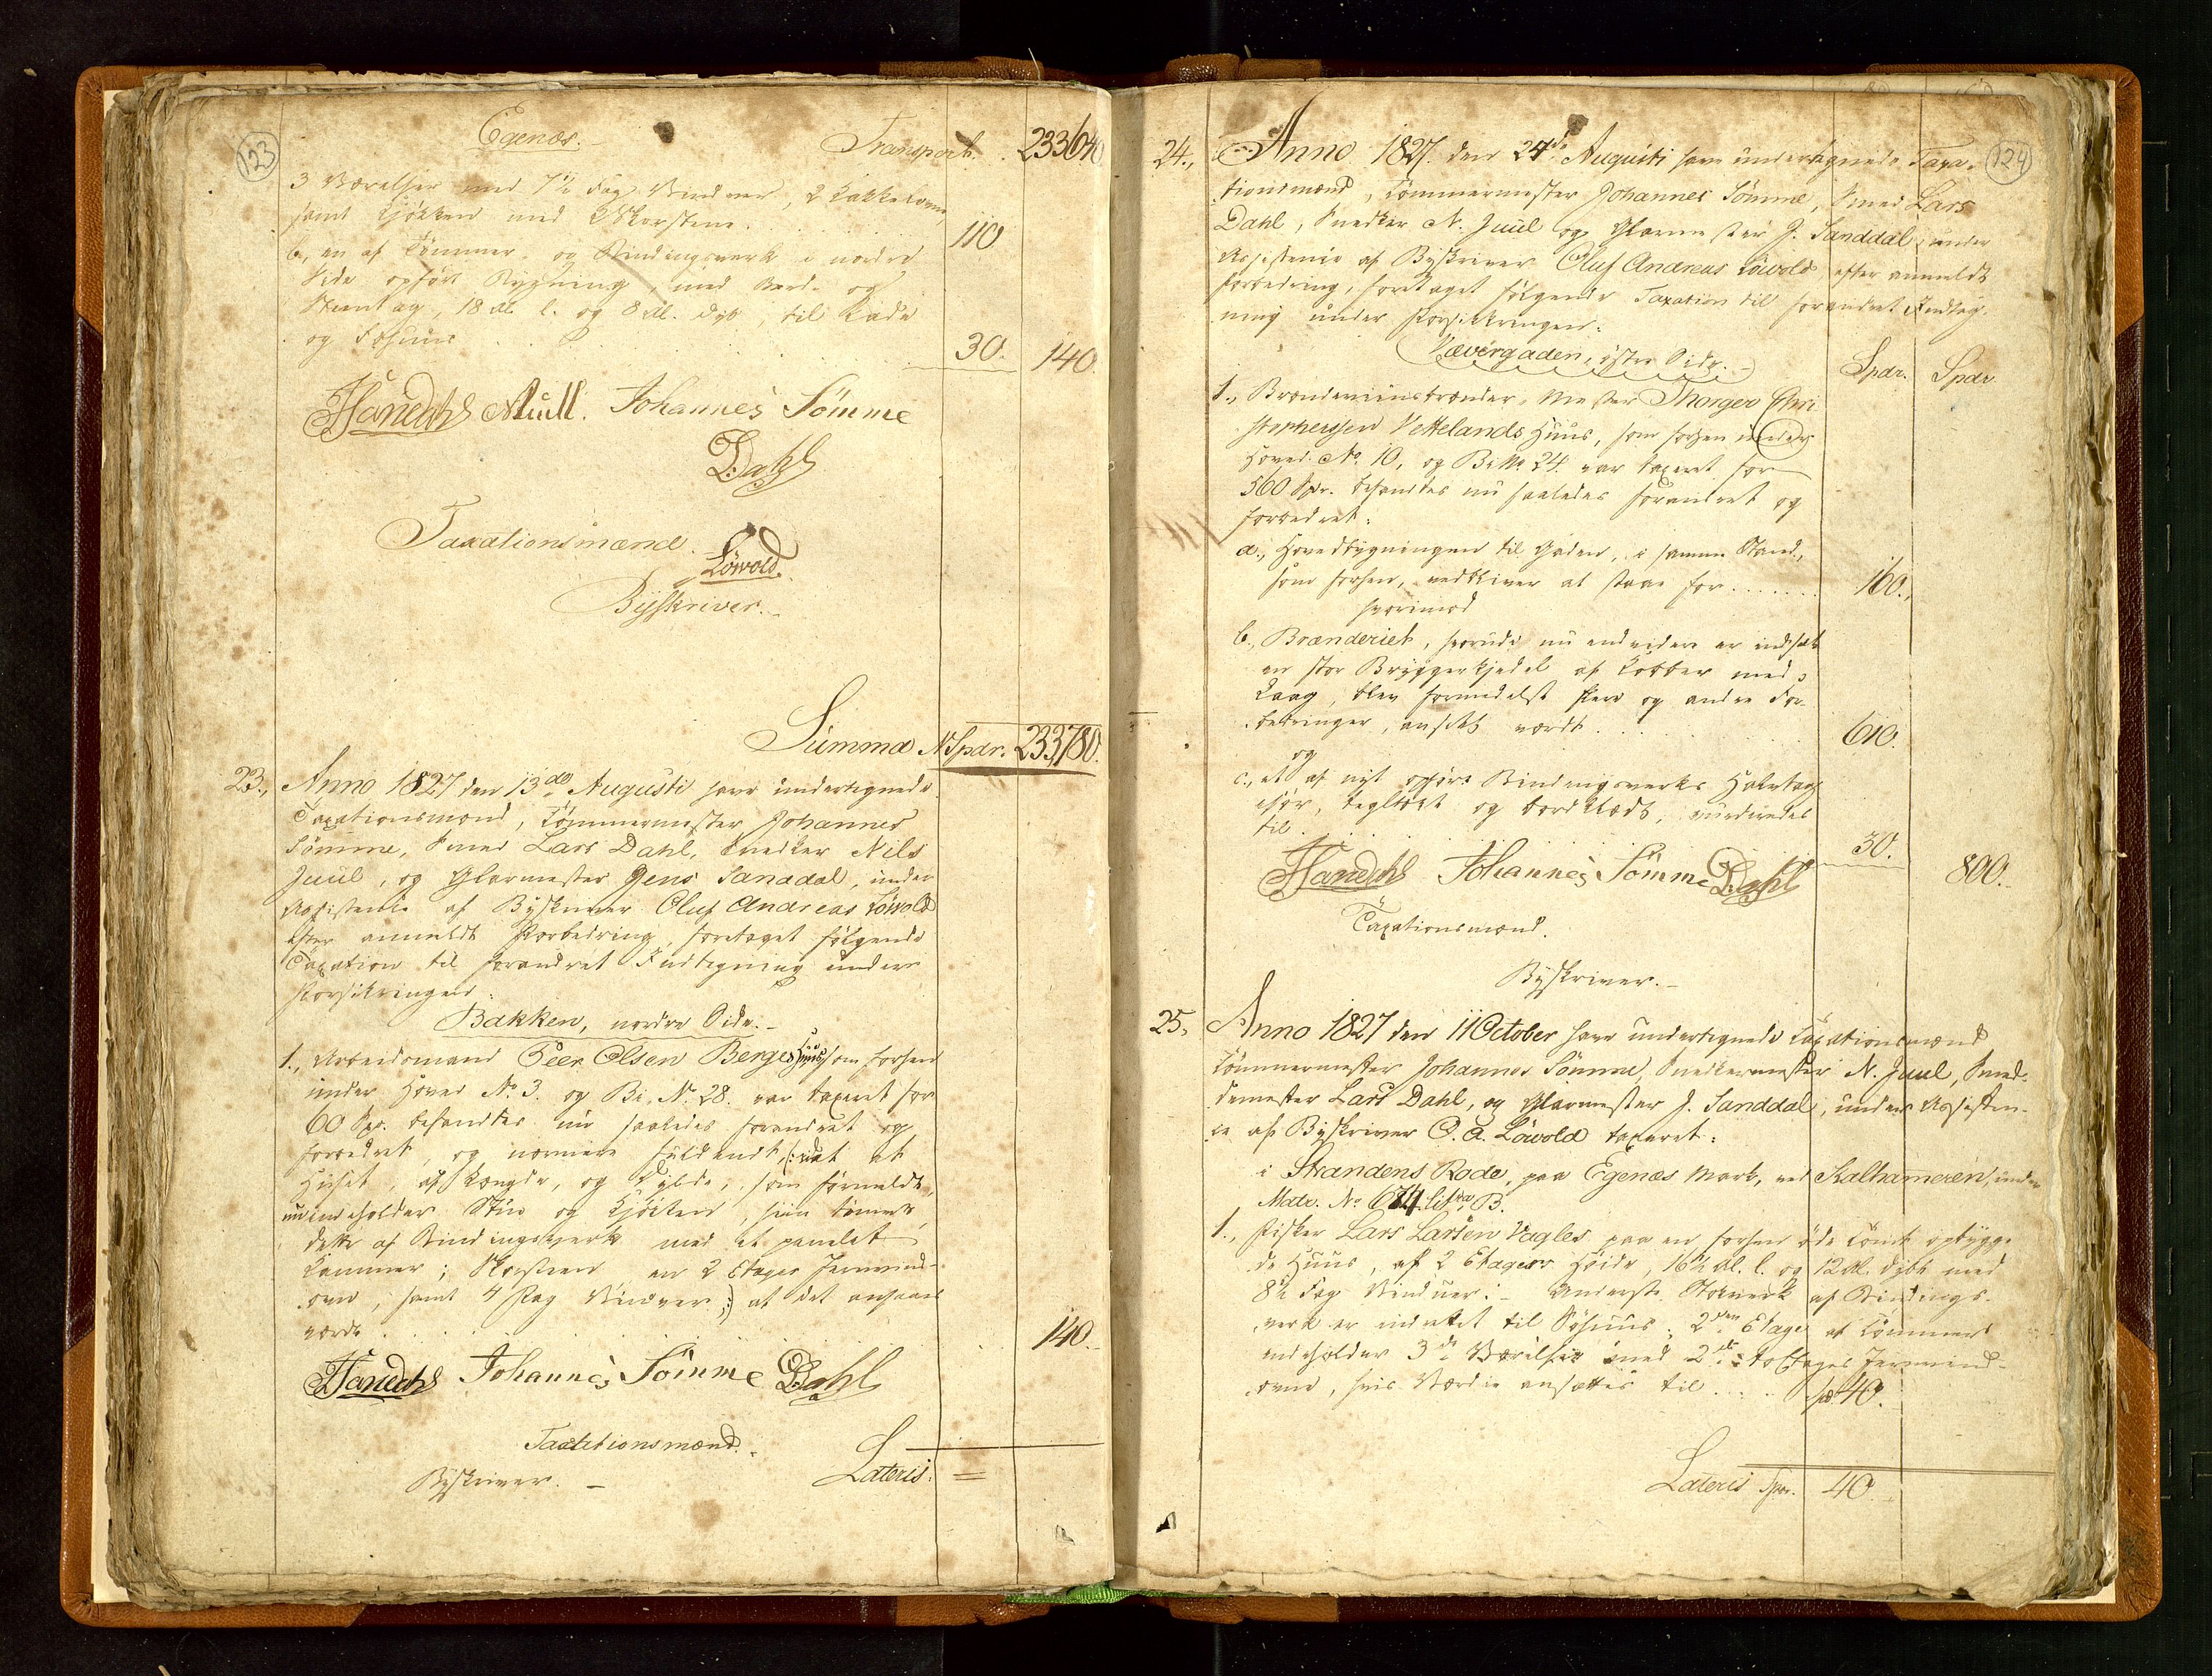 123
Egenæs.
Transport. 233640
3 Værelser med 7½ Fag Vinduer, 2 Kakkelovne,
samt Kjøkken med Skorsteen. 110
b., en af Tømmer- og Bindingsverk i nordre
Side opført Bygning, med Bord- og
Steentag, 18 Al. l. og 8 Al. dyb, til Lade
og Føhuus 30. 140.
Johannes Sömme
Dahl
Taxationsmænd.
Löwold.
Byskriver.
Summa N Spdr. 233,780.
23., Anno 1827 den 13de Augusti have undertegnede
Taxationsmænd, Tømmermester Johannes
Sömme, Smed Lars Dahl, Snedker Nils
Juul, og Glarmester Jens Sanddal, under
Assistence af Byskriver Oluf Andreas Löwold
efter anmeldt Forbedring, foretaget følgende
Taxation til forandret Indtegning under
Forsikringen:
Bakken, nordre Side.
1., Arbeidsmand Peer Olsen Berges Huus, som forhen
under Hoved No. 3. og Bi. N. 28. var taxeret for
60 Spdr. befandtes nu saaledes forandret og
forbedret, og nærmere fuldendt, (: at
Huset, af Længde, og Dybde, som førmeldt,
nu indeholder Stue og Kjøkken, hiin tømret,
dette af Bindingsverk med et panelet
Kammer; Skorsteen, en 2 Etages Jernvind-
ovn, samt 4 Fag Vinduer :) at det ansaaes
værdt 140.
Johannes Sömme Dahl
Taxationsmænd.
Byskriver. Lateris. =
124
24., Anno 1827. den 24de Augusti have undertegnede Taxa-
tionsmænd, Tømmermester Johannes Sömme, Smed Lars
Dahl, Snedker N. Juul og Glarmester J. Sanddal, under
Assistence af Byskriver Oluf Andreas Löwold, efter anmeldt
Forbedring, foretaget følgende Taxation til forandret Indteg-
ning under Forsikringen:
Væwergaden, østre Side. Spdr. Spdr.
1., Brænderiinstrænder, Mester Thorger Chri-
stophersen Vettelands Huus, som forhen under
Hoved No. 10, og Bi No 24. var taxeret for
560 Spdr. befandtes nu saaledes forandret og
forbedret:
a., Hovedbygningen til Gaden, i samme Stand,
som forhen, vedbliver at staae for 160.,
hvorimod
b., Brænderiet, hvorudi nu endvidere er indsat
en stor Bryggerkjedel af Kobber med
Laag, blev formedelst  og andre For-
betringer, anseet værdt 610.
og
c., et af nyt opført Bindingsverks Halvtags
, tegltækt og bordklædt, vurderedes
til 30. 800.
Johannes Sömme Dahl
Taxationsmænd.
Byskriver.
25., Anno 1827 den 11 October have undertegnede Taxationsmænd
Tømmermester Johannes Sömme, Snedkermester N. Juul, Sme-
demester Lars Dahl, og Glarmester J. Sanddal, under Assisten-
ce af Byskriver O. A. Löwold taxeret:
i Strandens Rode, paa Egenæs Mark, ved Kalhameren, under
Matr. No 674. litra B.
1., Fisker Lars Larsen Vagles paa en forhen øde Tomt opbygge-
de Huus, af 2 Etagers Høide, 16½ Al. l. og 12 Al. dybt med
8½ Fag Vinduer. Underste Stokverk af Bindings-
verk er indrettet til Søhuus; 2den Etage af Tømmer
indeholder 3de Værelser med 2de to Etages Jernvind-
ovne, hvis Værdie ansættes til 40.
Lateris Spdr. 40